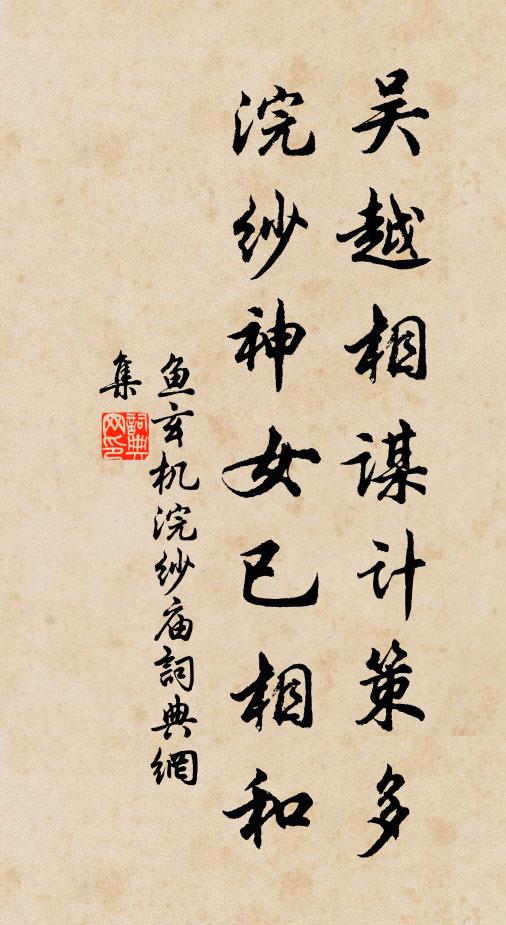 吴越相谋计策多
浣纱神女已相和
鱼玄机浣纱庙詞典網
集
詞典网印